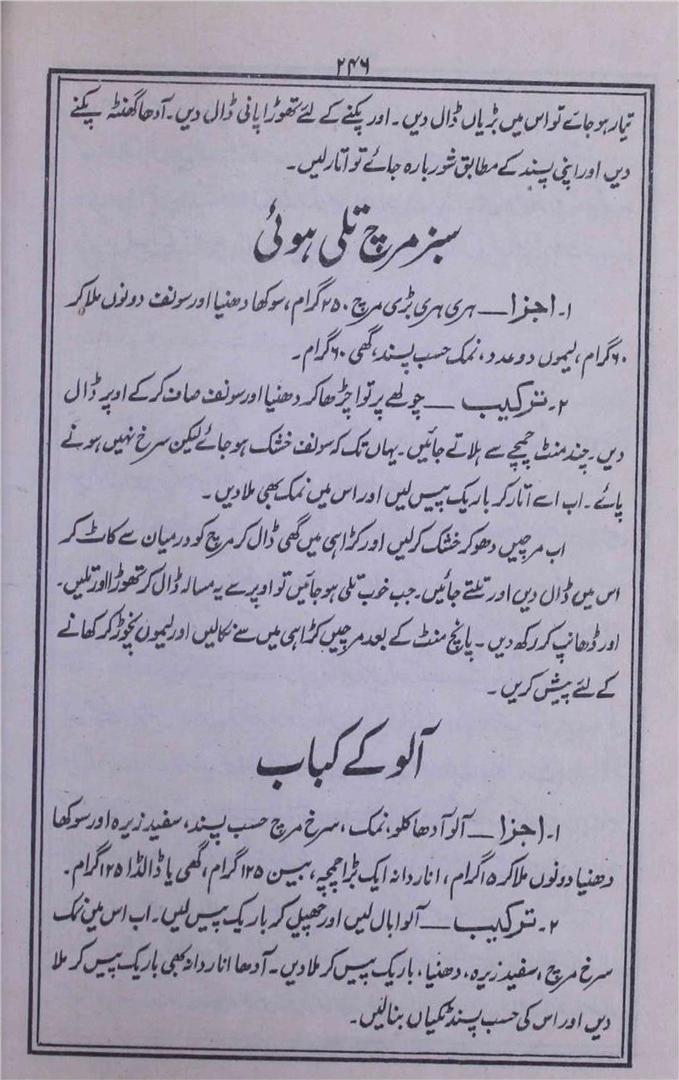 ۲۴۶
تیار ہو جائے تو اس میں بڑیاں ڈال دیں۔ اور پکنے کے لئے تھوڑا پانی ڈال دیں۔ آدھا گھنٹہ پکنے
دیں اور اپنی پسند کے مطابق شوربہ رہ جائے تو اتار لیں۔
سبز مرچ تلی ہوئی
۱۔ اجزا — ہری ہری بڑی مرچ ۲۵۰ گرام، سوکھا دھنیا اور سونف دونوں ملا کر
۶۰ گرام، لیموں دو عدد، نمک حسب پسند، گھی ۶۰ گرام۔
۲۔ ترکیب — چولھے پر توا چڑھا کر دھنیا اور سونف صاف کر کے اوپر ڈال
دیں۔ چند منٹ چمچے سے ہلاتے جائیں۔ یہاں تک کہ سونف خشک ہو جائے لیکن سرخ نہیں ہونے
پائے۔ اب اسے اتار کر باریک پیس لیں اور اس میں نمک بھی ملا دیں۔
اب مرچیں دھو کر خشک کر لیں اور کڑاہی میں گھی ڈال کر مرچ کو درمیان سے کاٹ کر
اس میں ڈال دیں اور تلتے جائیں۔ جب خوب تلی ہو جائیں تو اوپر سے یہ مسالہ ڈال کر تھوڑا اور تلیں۔
اور ڈھانپ کر رکھ دیں۔ پانچ منٹ کے بعد مرچیں کڑاہی میں سے نکالیں اور لیموں نچوڑ کر کھانے
کے لئے پیش کریں۔
آلو کے کباب
۱۔ اجزا — آلو آدھا کلو، نمک، سرخ مرچ حسب پسند، سفید زیرہ اور سوکھا
دھنیا دونوں ملا کر ۱۵ گرام، انار دانہ ایک بڑا چمچہ، بیسن ۱۲۵ گرام، گھی یا ڈالڈا ۱۲۵ گرام۔
۲۔ ترکیب — آلو ابال لیں اور چھیل کر باریک پیس لیں۔ اب اس میں نمک
سرخ مرچ، سفید زیرہ، دھنیا، باریک پیس کر ملا دیں۔ آدھا انار دانہ بھی باریک پیس کر ملا
دیں اور اس کی حسب پسند ٹکیاں بنا لیں۔